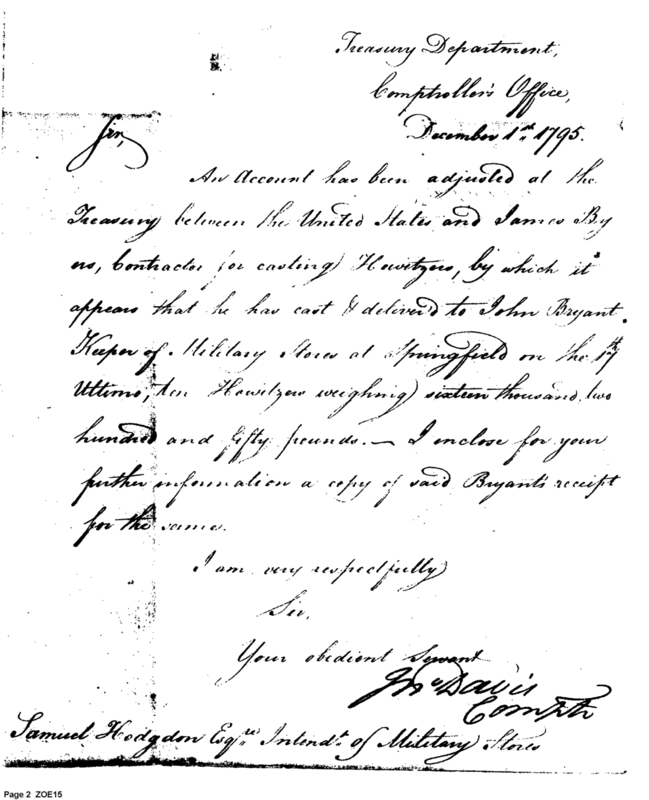 Treasury Department,
Comptroller's Office,
December 1st 1795.
Sir,
An Account has been adjusted at the
Treasury between the United States and James By
ers, Contractor for casting Howitzers, by which it
appears that he has cast & deliver'd to John Bryant
Keeper of Military Stores at Springfield on the 17th
Ultimo, ten Howitzers weighing sixteen thousand two
hundred and fifty pounds. — I enclose for your
further information a copy of said Bryant's receipt
for the same.
I am very respectfully
Sir,
Your obedient Servant
Jno Davis
Comptr
Samuel Hodgdon Esqre Intendt of Military Stores
Page 2 ZOE15